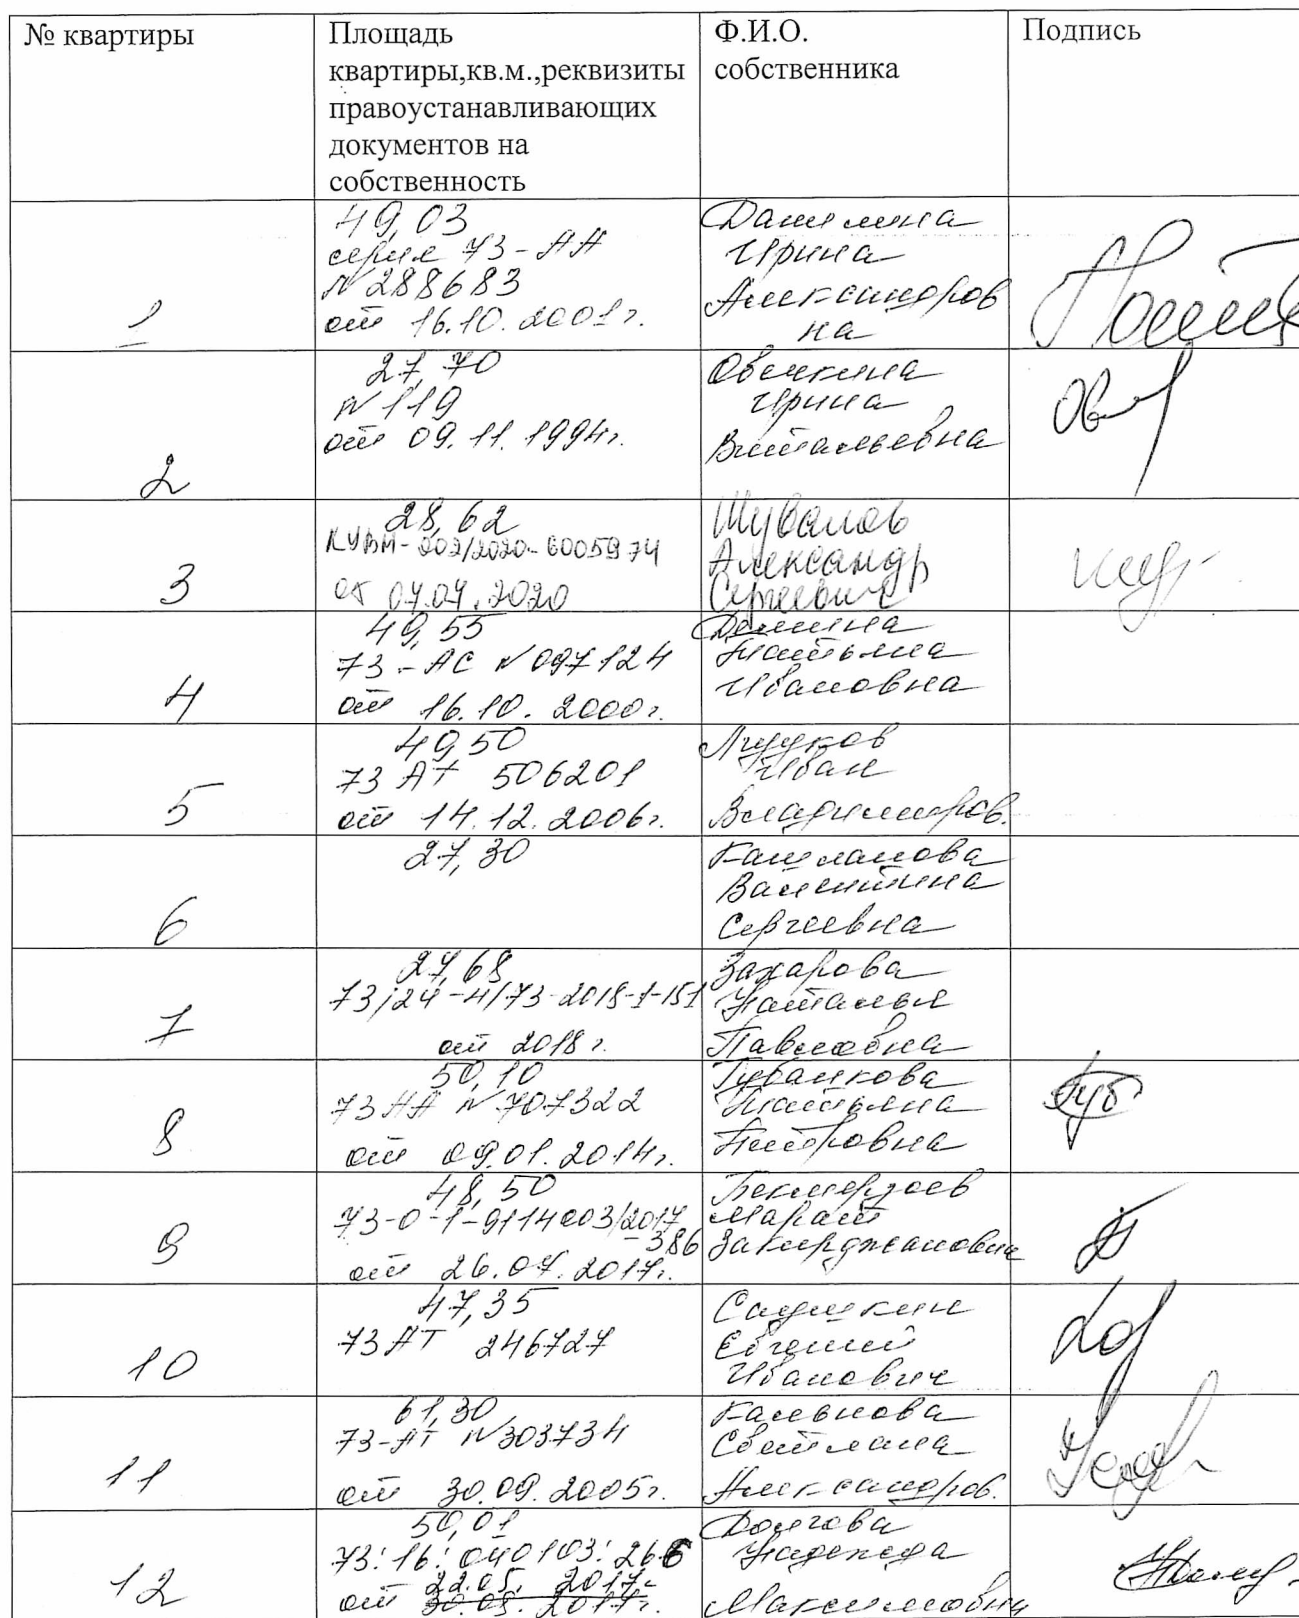 № квартиры
Площадь
квартиры,кв.м.,реквизиты
правоустанавливающих
документов на
собственность
Ф.И.О.
собственника
Подпись
1
49,03
серия 73-АА
№ 288683
от 16.10.2001г.
Ирина
Александров
на
2
27,70
№ 119
от 09.11.1994г.
Овечкина
Ирина
Витальевна
Ов
3
28,62
КУВИ-202/2020-6005974
от 04.04.2020
Шувалов
Александр
Сергеевич
4
49,55
73-АС № 097124
от 16.10.2000г.
Демина
Татьяна
Ивановна
5
49,50
73 АТ 506201
от 14.12.2006г.
Иван
Владимиров.
6
27,30
Валентина
Сергеевна
7
27,68
73/24-4/73-2018-1-151
от 2018г.
Захарова
Наталья
Павловна
8
50,10
73 АА № 707322
от 09.01.2014г.
Губанкова
Татьяна
Петровна
Губ
9
48,50
73-0-1-9114003/2017
-386
от 26.07.2017г.
Марат
Закирджанович
10
47,35
73 АТ 246727
Евгений
Иванович
11
61,30
73-АТ №303734
от 30.09.2005г.
Светлана
Александров.
12
50,01
73:16:040103:266
22.05. 2017г
от 30.05.2017г.
Долгова
Надежда
Максимовна